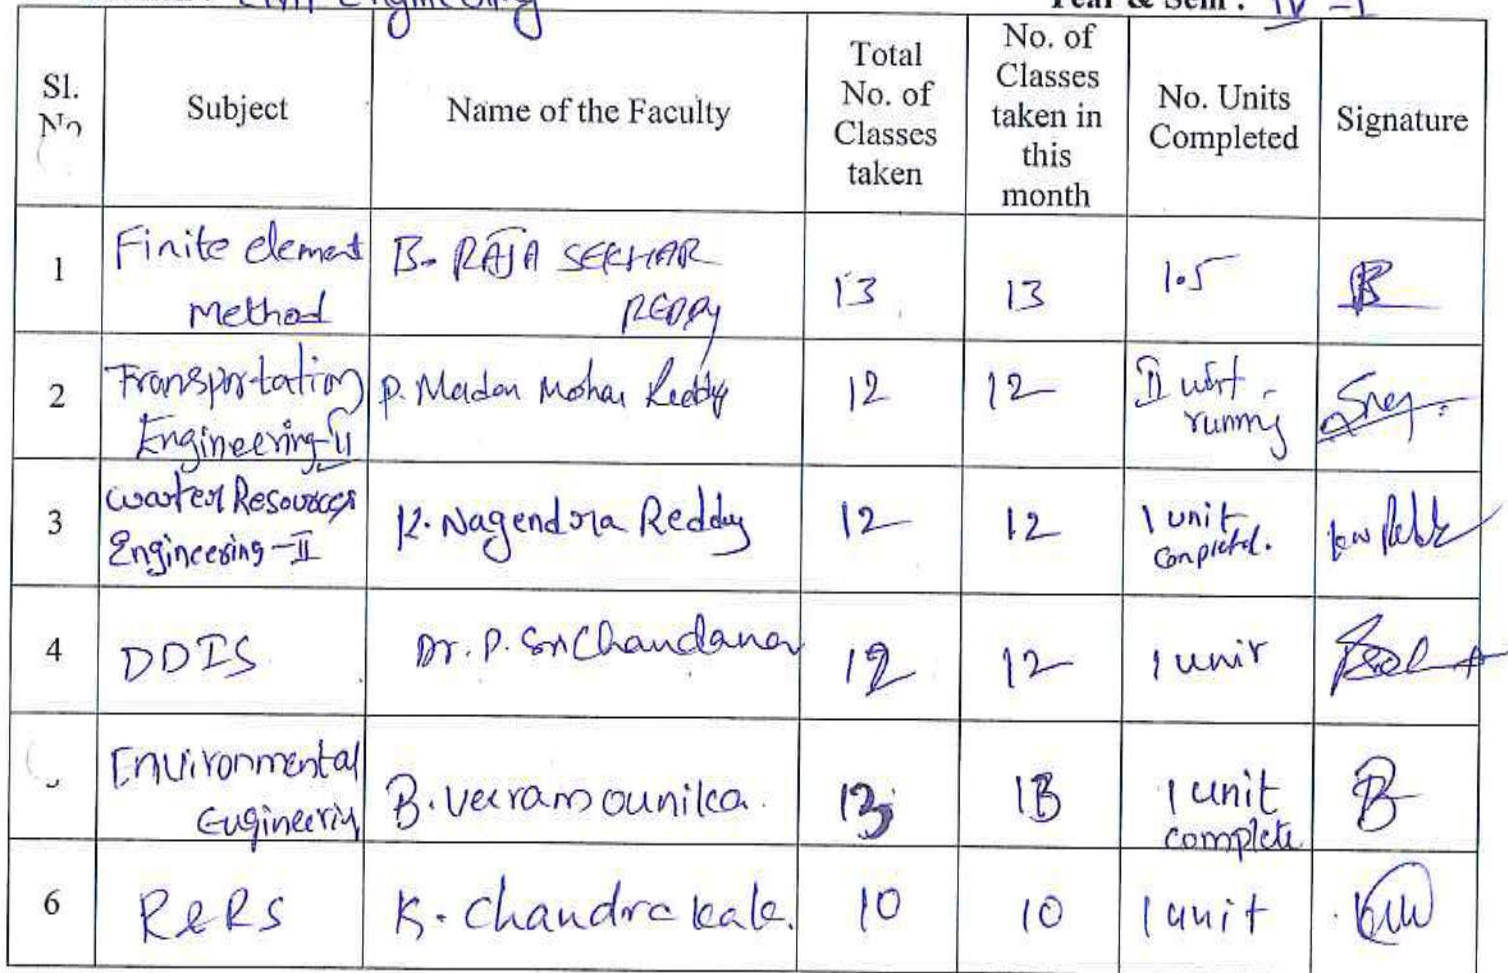 Civil Engineering
Year & Sem : IV - I
Sl. No
Subject
Name of the Faculty
Total No. of Classes taken
No. of Classes taken in this month
No. Units Completed
Signature
1
Finite element method
B. RAJA SEKHAR REDDY
13
13
1.5
2
Transportation Engineering-II
P. Madan Mohan Reddy
12
12
II unit running
3
Water Resources Engineering-II
K. Nagendra Reddy
12
12
1 unit completed.
4
DDIS
Dr. P. Sri Chandana
12
12
1 unit
Environmental Engineering
B. Veeramounika.
13
13
1 unit complete
6
R&RS
K. Chandrakala.
10
10
1 unit